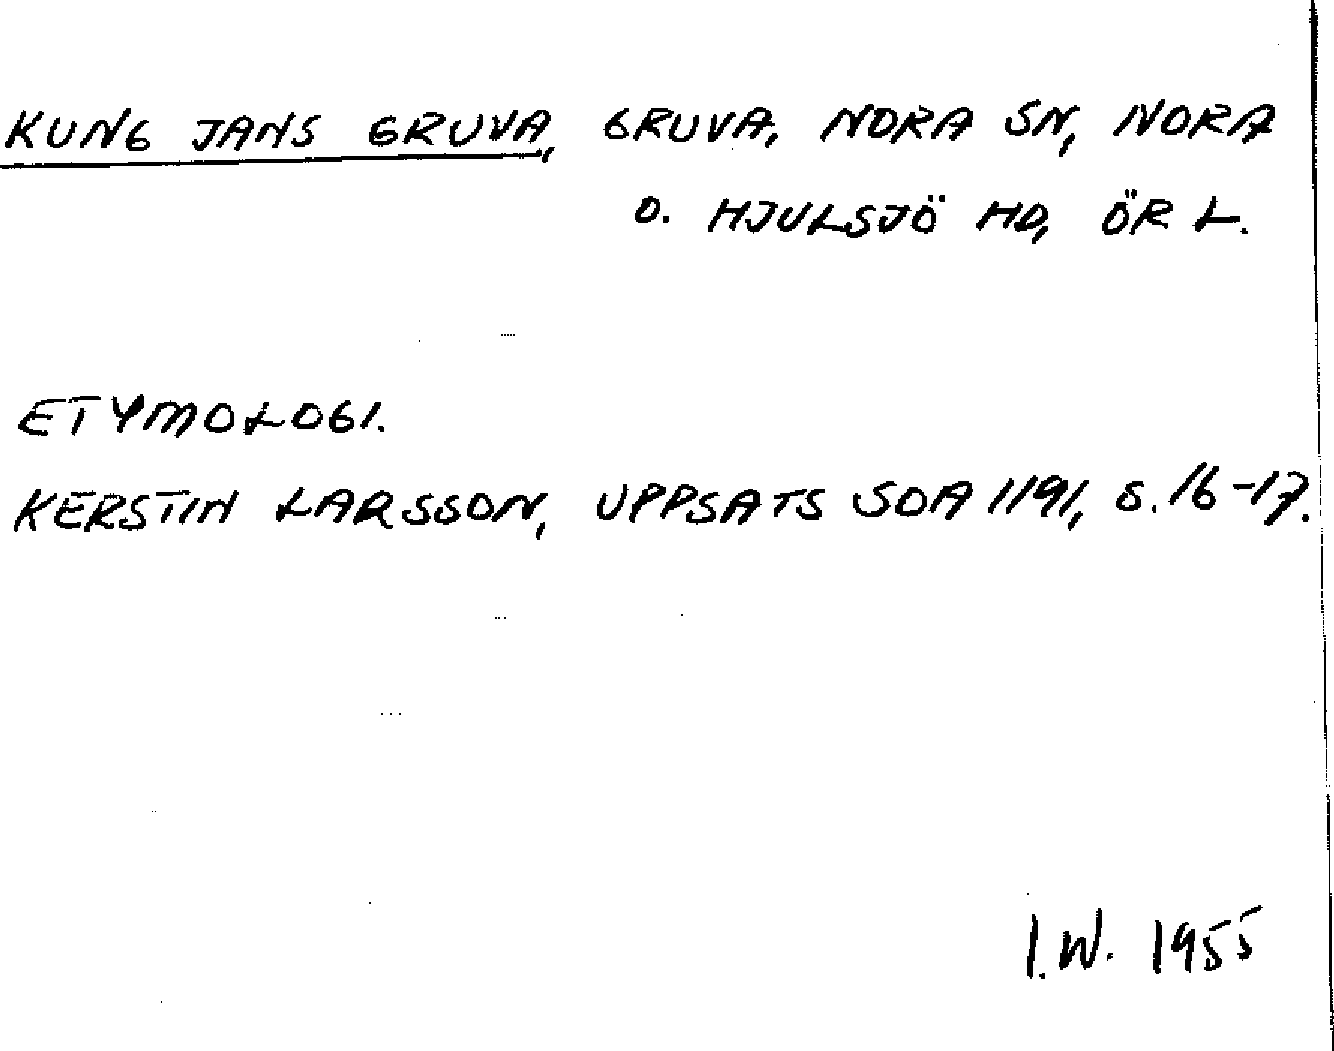 KUNG JANS GRUVA, GRUVA, NORA SN, NORA
O. HJULSJÖ HD, ÖR L.
ETYMOLOGI.
KERSTIN LARSSON, UPPSATS SOA 1191, S. 16-17.
I.W. 1955